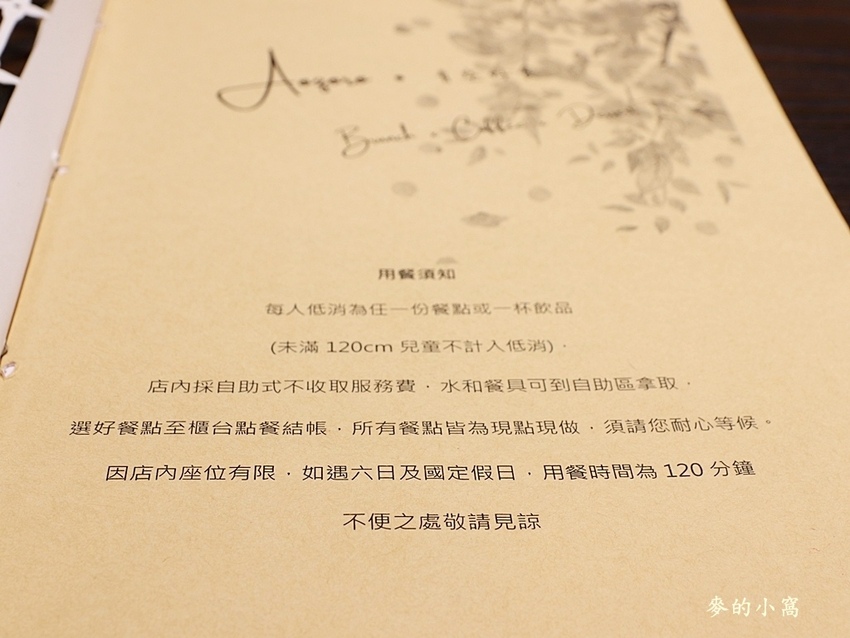 用餐須知
每人低消為任一份餐點或一杯飲品
(未滿 120cm 兒童不計入低消)．
店內採自助式不收取服務費．水和餐具可到自助區拿取．
選好餐點至櫃台點餐結帳．所有餐點皆為現點現做．須請您耐心等候。
因店內座位有限．如遇六日及國定假日．用餐時間為 120 分鐘
不便之處敬請見諒
麥的小窩